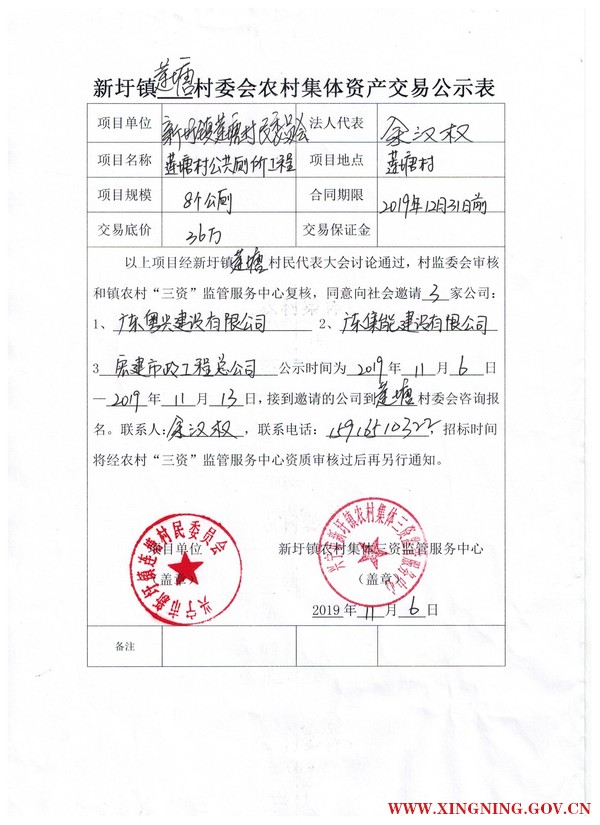 新圩镇莲塘村委会农村集体资产交易公示表
项目单位 新圩镇莲塘村民委员会 法人代表 余汉权
项目名称 莲塘村公共厕所工程 项目地点 莲塘村
项目规模 8个公厕 合同期限 2019年12月31日前
交易底价 36万 交易保证金
以上项目经新圩镇莲塘村民代表大会讨论通过，村监委会审核
和镇农村“三资”监管服务中心复核，同意向社会邀请 3 家公司：
1、广东粤兴建设有限公司 2、广东集能建设有限公司
3 宏建市政工程总公司 公示时间为 2019 年 11 月 6 日
—2019 年 11 月 13 日，接到邀请的公司到莲塘村委会咨询报
名。联系人：余汉权，联系电话：15916510322，招标时间
将经农村“三资”监管服务中心资质审核过后再另行通知。
项目单位 新圩镇农村集体三资监管服务中心
盖章 （盖章）
兴宁市新圩镇莲塘村民委员会
兴宁市新圩镇农村集体三资监管服务中心
2019 年 11 月 6 日
备注
WWW.XINGNING.GOV.CN